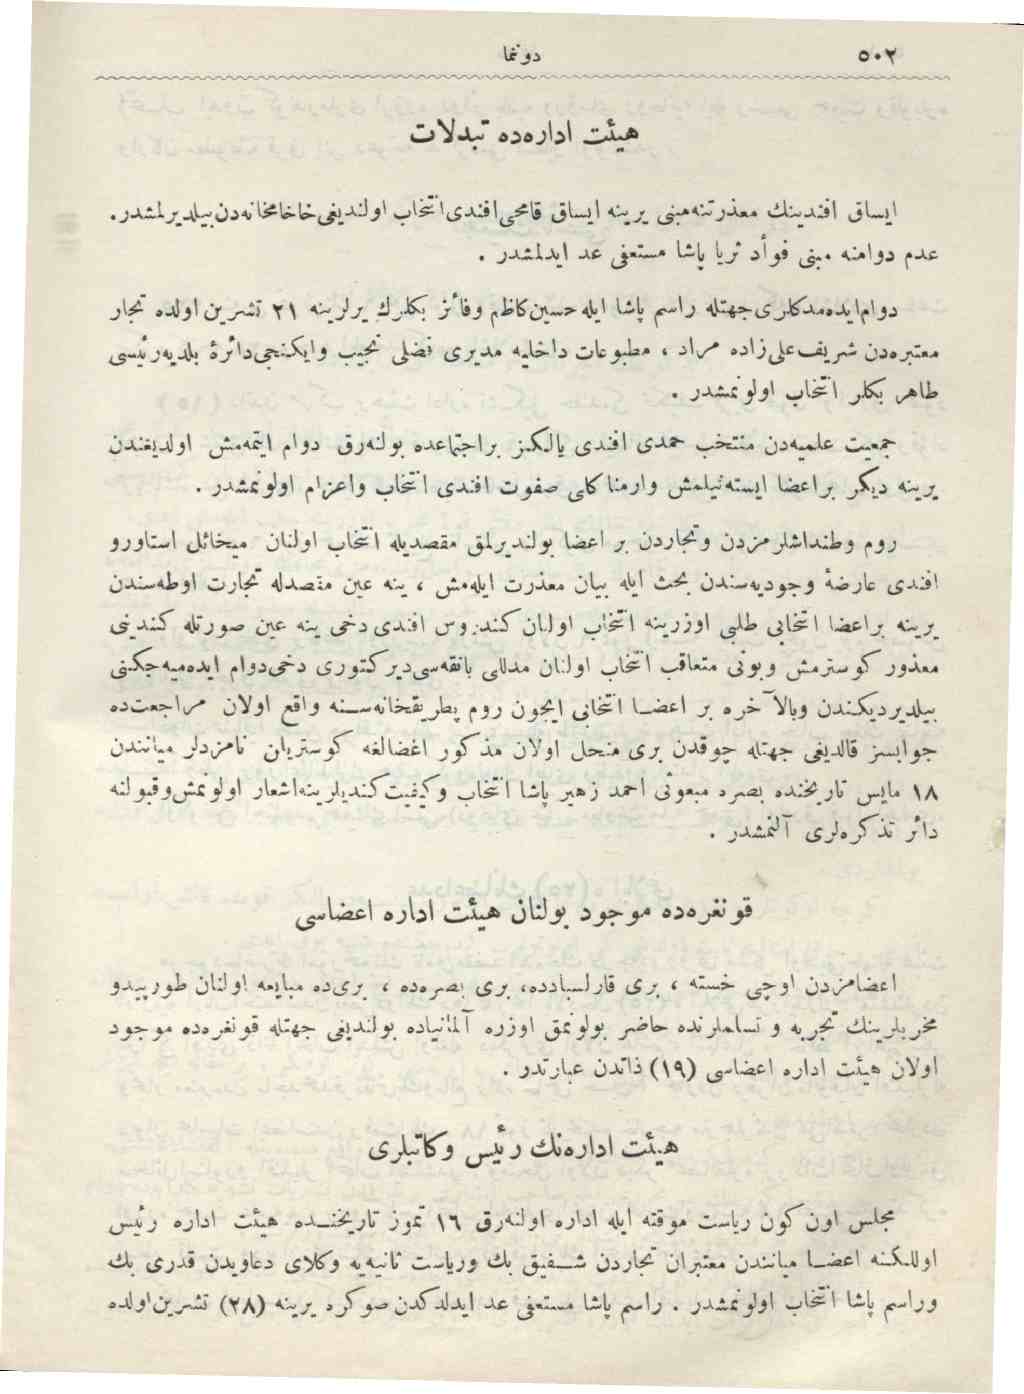 ٥٠٢
دونما
هیئت اداره‌ده تبدلات
ایساق افندینك معذرتنه‌مبنی یرینه ایساق قامحی‌افندی‌انتخاب اولندیغی‌خاخامخانه‌دن‌بیلدیرلمشدر.
عدم دوامنه مبنی فوأد ثریا پاشا مستعفی عد ایدلمشدر .
دوام‌ایده‌مدکلری‌جهتله راسم پاشا ایله حسین‌کاظم وفائز بکلرك یرلرینه ٢١ تشرین اولده تجار
معتبره‌دن شریف‌علی‌زاده مراد ، مطبوعات داخلیه مدیری فضلی نجیب وایکنجی‌دائرهٔ بلدیه‌رئیسی
طاهر بکلر انتخاب اولونمشدر .
جمعیت علمیه‌دن منتخب حمدی افندی یالکز براجتماعده بولنه‌رق دوام ایتمه‌مش اولدیغندن
یرینه دیکر براعضا ایسته‌نیلمش وارمناکلی صفوت افندی انتخاب واعزام اولونمشدر .
روم وطنداشلرمزدن وتجاردن بر اعضا بولندیرلمق مقصدیله انتخاب اولنان میخائل استاورو
افندی عارضهٔ وجودیه‌سندن بحث ایله بیان معذرت ایله‌مش ، ینه عین مقصدله تجارت اوطه‌سندن
یرینه براعضا انتخابی طلبی اوزرینه انتخاب اولنان کندروس افندی دخی ینه عین صورتله کندینی
معذور کوسترمش وبونی متعاقب انتخاب اولنان مدللی بانقه‌سی‌دیرکتوری دخی‌دوام ایده‌میه‌جکنی
بیلدیردیکندن وبالآخره بر اعضا انتخابی ایچون روم پطریقخانه‌سنه واقع اولان مراجعت‌ده
جوابسز قالدیغی جهتله چوقدن بری منحل اولان مذکور اعضالغه کوستریلن نامزدلر میانندن
١٨ مایس تاریخنده بصره مبعوثی احمد زهیر پاشا انتخاب وکیفیت‌کندیلرینه‌اشعار اولونمش‌وقبولنه
دائر تذکره‌لری آلنمشدر .
قونغره‌ده موجود بولنان هیئت اداره اعضاسی
اعضامزدن اوچی خسته ، بری قارلسبادده، بری بصره‌ده ، بری‌ده مبایعه اولنان طورپیدو
مخربلرینك تجربه و تسلملرنده حاضر بولونمق اوزره آلمانیاده بولندیغی جهتله قونغره‌ده موجود
اولان هیئت اداره اعضاسی (١٩) ذاتدن عبارتدر .
هیئت اداره‌نك رئیس وکاتبلری
مجلس اون کون ریاست موقته ایله اداره اولنه‌رق ١٦ تموز تاریخنده هیئت اداره رئیس
اوللکنه اعضا میانندن معتبران تجاردن شفیق بك وریاست ثانیه‌یه وکلای دعاویدن قدری بك
وراسم پاشا انتخاب اولونمشدر . راسم پاشا مستعفی عد ایدلدکدن صوکره یرینه (٢٨) تشرین‌اولده